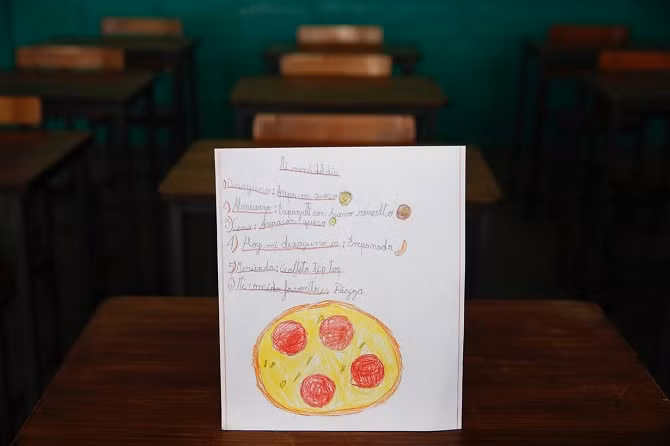 Mi menú del día
1) Desayuno: Arepa con queso
2) Almuerzo: Espagueti con huevo revuelto
3) Cena: Arepa con queso
4) Hoy mi desayuno es: Empanada
5) Merienda: Galleta tip top
6) Mi comida favorita es Pizza